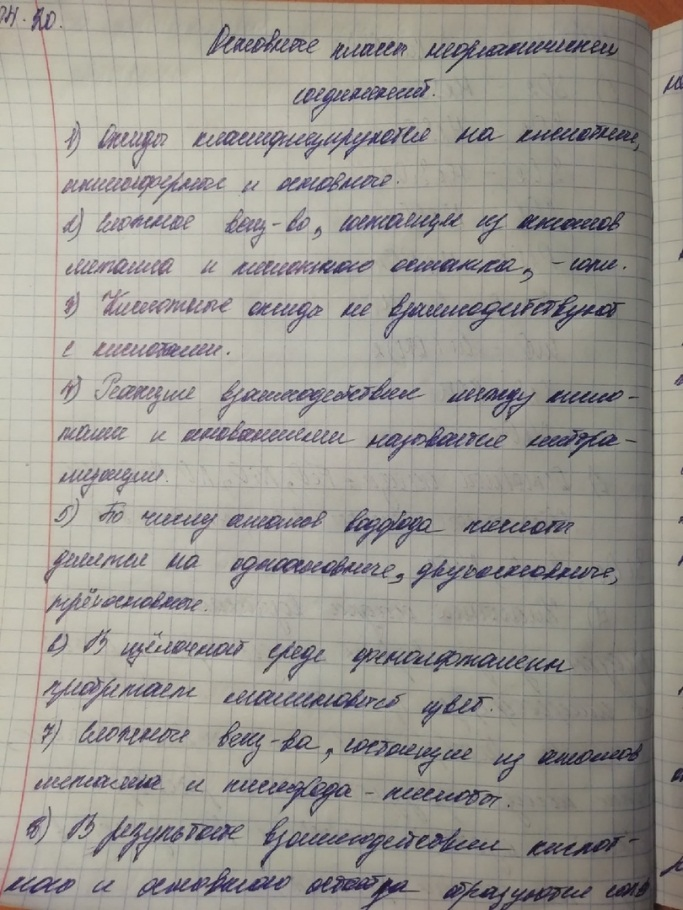 20.
Основные классы неорганических
соединений.
1) Оксиды классифицируются на кислотные,
амфотерные и основные.
2) Сложное вещ-во, состоящее из атомов
металла и кислотного остатка, - соли.
3) Кислотные оксиды не взаимодействуют
с кислотами.
4) Реакция взаимодействия между кисло-
тами и основаниями называется нейтра-
лизации.
5) По числу атомов водорода кислоты
делятся на одноосновные, двухосновные,
трёхосновные.
6) В щёлочной среде фенолфталеин
приобретает малиновый цвет.
7) Сложные вещ-ва, состоящие из атомов
металла и кислорода - кислоты.
8) В результате взаимодействия кислот-
ного и основного образуются соли